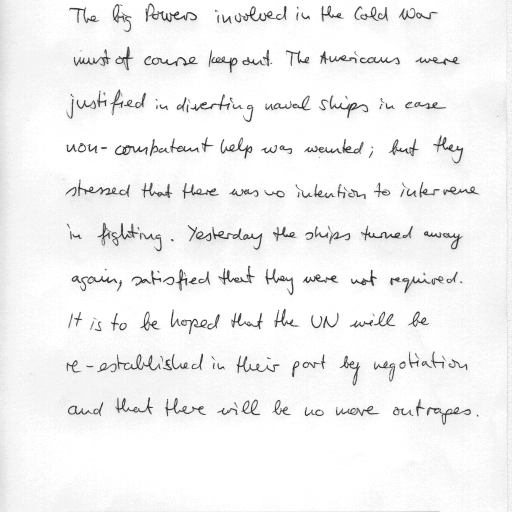 The Big Powers involved in the Cold War
must of course keep out. The Americans were
justified in diverting naval ships in case
non-combatant help was wanted; but they
stressed that there was no intention to intervene
in fighting. Yesterday the ships turned away
again, satisfied that they were not required.
It is to be hoped that the UN will be
re-established in their part by negotiation
and that there will be no more outrages.